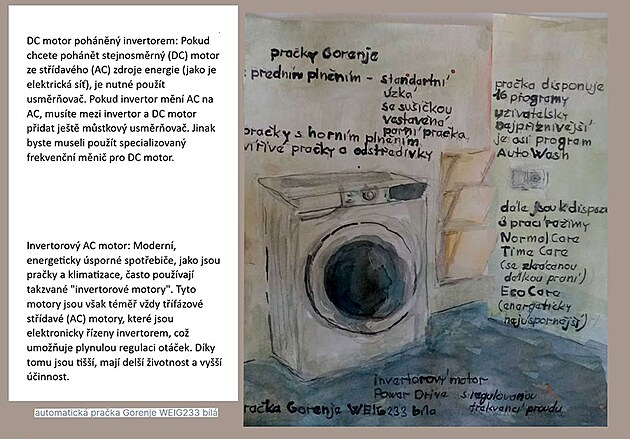 DC motor poháněný invertorem: Pokud
chcete pohánět stejnosměrný (DC) motor
ze střídavého (AC) zdroje energie (jako je
elektrická síť), je nutné použít
usměrňovač. Pokud invertor mění AC na
AC, musíte mezi invertor a DC motor
přidat ještě můstkový usměrňovač. Jinak
byste museli použít specializovaný
frekvenční měnič pro DC motor.
Invertorový AC motor: Moderní,
energeticky úsporné spotřebiče, jako jsou
pračky a klimatizace, často používají
takzvané "invertorové motory". Tyto
motory jsou však téměř vždy třífázové
střídavé (AC) motory, které jsou
elektronicky řízeny invertorem, což
umožňuje plynulou regulaci otáček. Díky
tomu jsou tišší, mají delší životnost a vyšší
účinnost.
automatická pračka Gorenje WEIG233 bílá
pračky Gorenje
předním plněním - standartní
úzká
se sušičkou
vestavěná
parní pračka
pračky s horním plněním
vířivé pračky a odstředivky
pračka disponuje
16 programy
uživatelsky
nejpříznivější
je asi program
AutoWash
dále jsou k dispozi
3 prací režimy
NormalCare
Time Care
(se zkrácenou
délkou praní)
EcoCare
(energeticky
nejúspornější)
invertorový motor
Power Drive s regulovanou
frekvencí proudu
račka Gorenje WEIG233 bílá